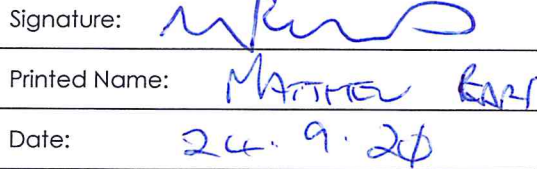 Signature:
Printed Name: MATTHEW
Date: 24.9.20